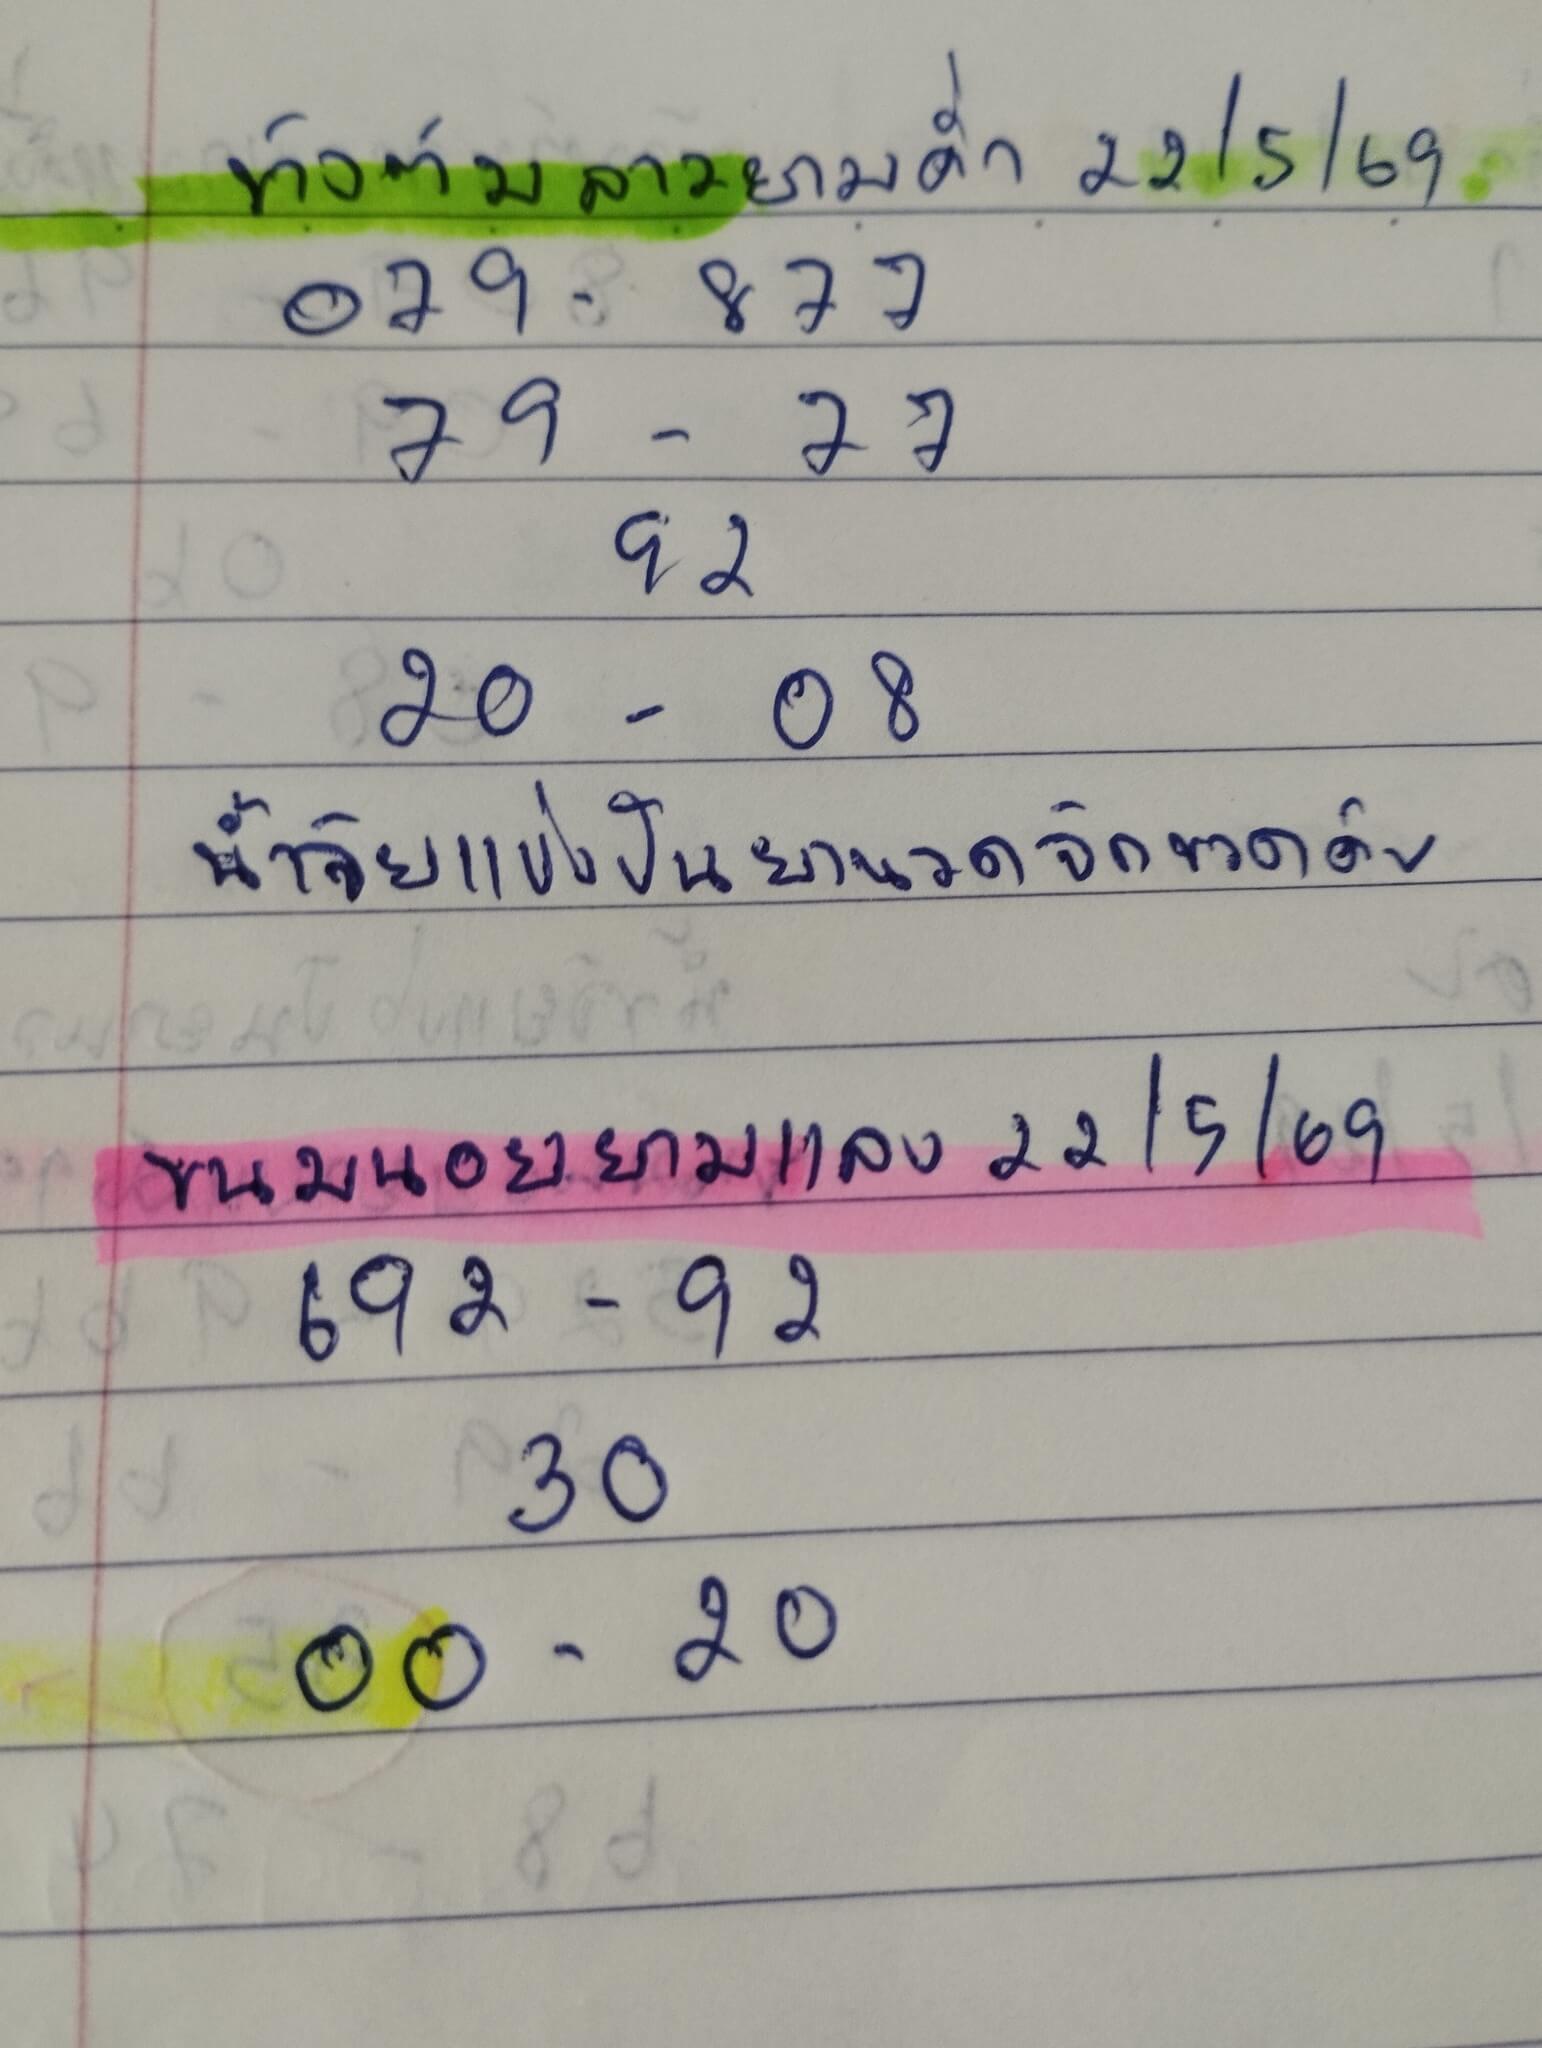 ข้าวต้มลาวยามค่ำ 22/5/69
079 - 877
79 - 77
92
20 - 08
น้ำใจแบ่งปันยานวดจักขวดค่ะ
ขนมนอยยามแลง 22/5/69
692 - 92
30
00 - 20